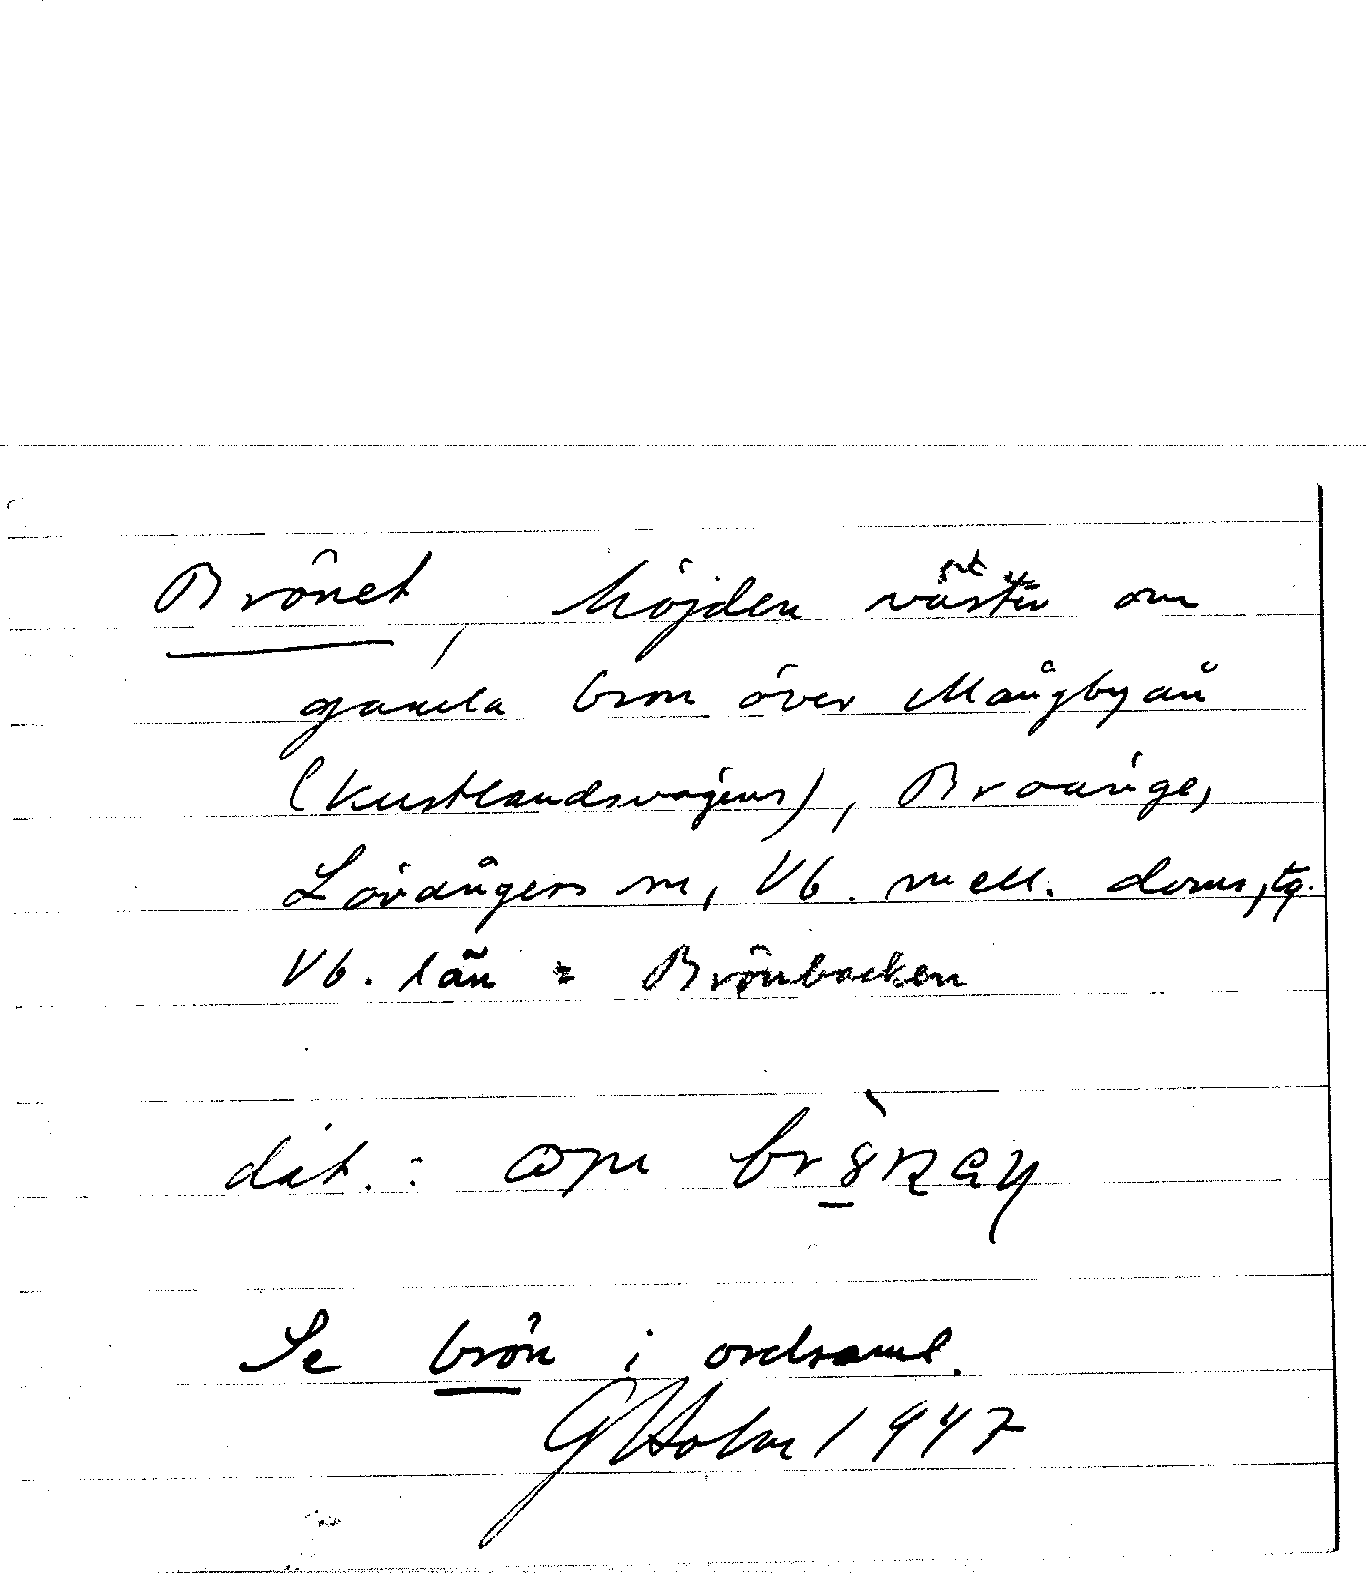 Brönet, höjden väster om
gamla bron över Mångbyån
(Kustlandsvägens), Broänge,
Lövångers sn, Vb. mell. doms,tg.
Vb. län = Brönbacken
dat. :
Se brön i ordsaml.
GHolm 1947